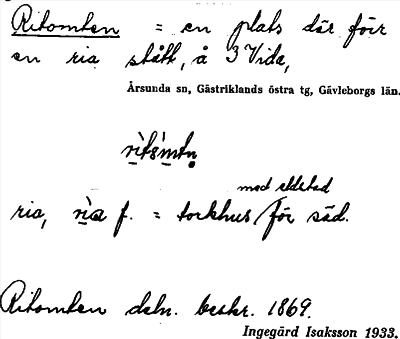 Ritomten = en plats där förr
en ria stått, å 3 Vida,
Årsunda sn, Gästriklands östra tg, Gävleborgs län.
med eldstad
ria, rìa f. = torkhus / för säd.
Ritomten deln. beskr. 1869.
Ingegärd Isaksson 1933.